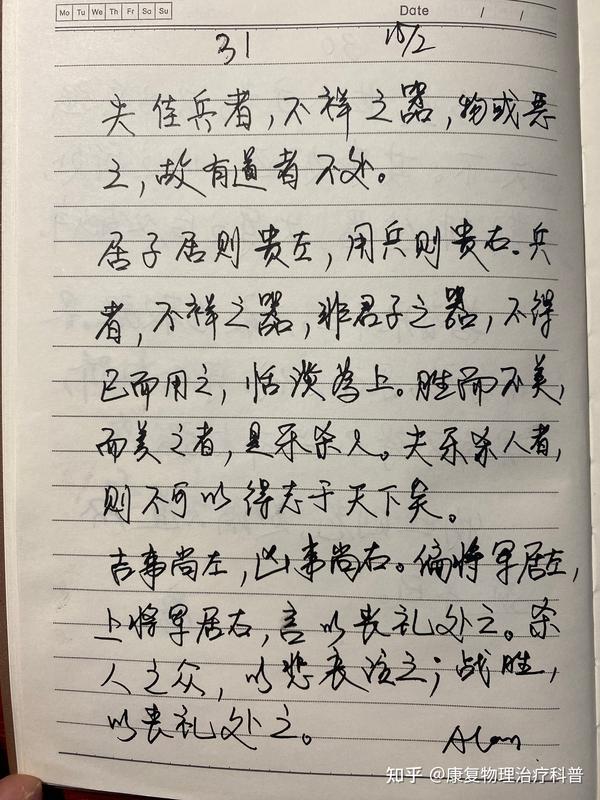 Mo Tu We Th Fr Sa Su
Date / /
31 10/2
夫佳兵者,不祥之器,物或恶
之,故有道者不处。
居子居则贵左,用兵则贵右.兵
者,不祥之器,非君子之器,不得
已而用之,恬淡为上。胜而不美,
而美之者,是乐杀人。夫乐杀人者,
则不可以得志于天下矣。
吉事尚左,凶事尚右。偏将军居左,
上将军居右,言以丧礼处之。杀
人之众,以悲哀泣之;战胜,
以丧礼处之。
Alan
知乎 @康复物理治疗科普